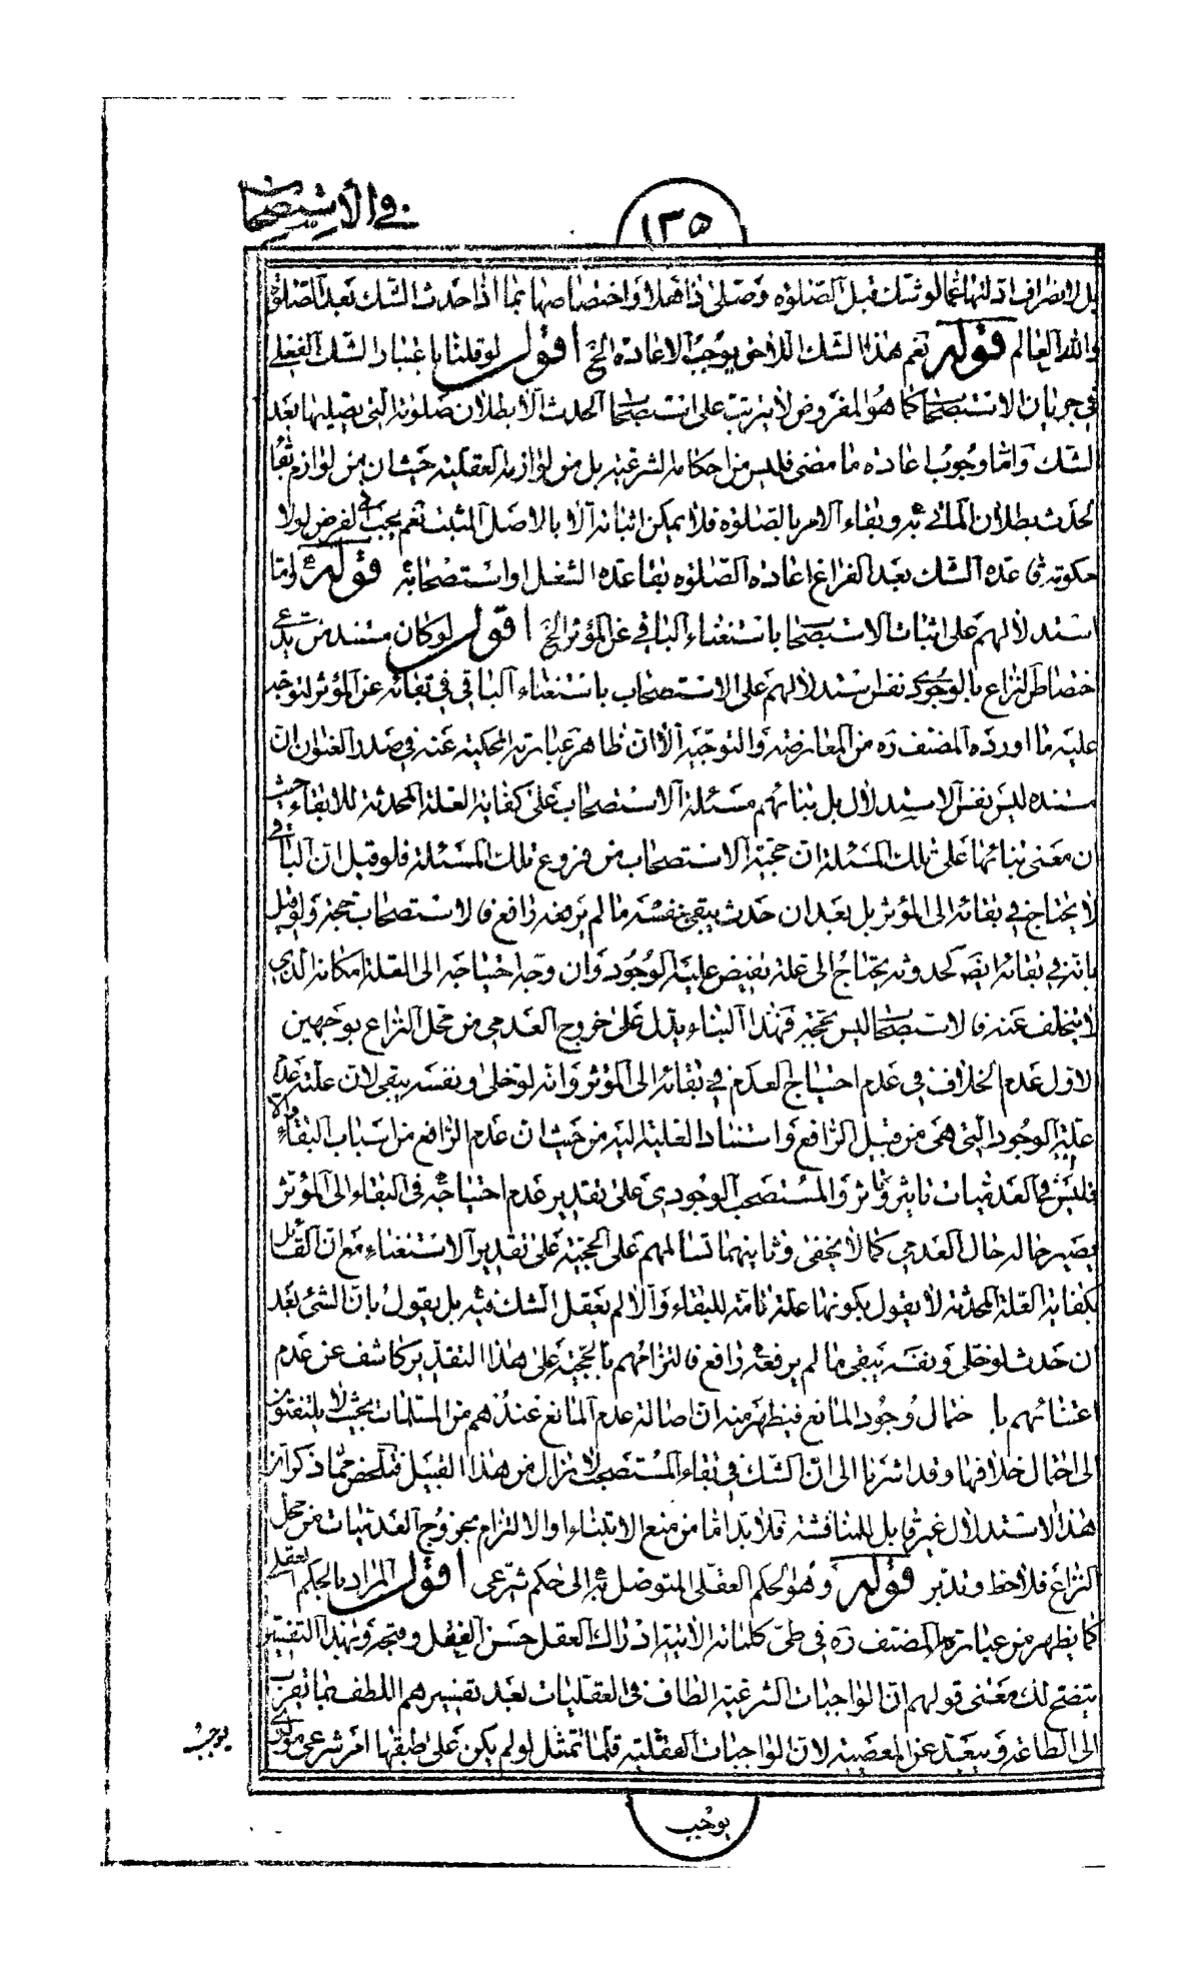 في الاستصحاب
١٣٥
بل لانصراف ادلتها عما لو شك قبل الصلوة وصلى ذاهلا واختصاصها بما اذا حدث الشك بعد الصلوة
والله العالم قوله نعم هذا الشك اللاحق يوجب الاعادة الخ اقول لو قلنا باعتبار الشك الفعلي
في جريان الاستصحاب كما هو المفروض لا يترتب على استصحاب الحدث الا بطلان صلوته التي يصليها بعد
الشك واما وجوب اعادة ما مضى فليس من احكامه الشرعية بل من لوازمه العقلية حيث ان من لوازم بقاء
الحدث بطلان الماتي به وبقاء الامر بالصلوة فلا يمكن اثباته الا بالاصل المثبت نعم يجب في الفرض لولا
حكومة قاعدة الشك بعد الفراغ اعادة الصلوة بقاعدة الشغل او استصحابه قوله ره واما
استدلالهم على اثبات الاستصحاب باستغناء الباقي عن المؤثر الخ اقول لو كان مستند من يدعي
اختصاص النزاع بالوجودي نفس استدلالهم على الاستصحاب باستغناء الباقي في بقائه عن المؤثر لتوجه
عليه ما اورده المصنف ره من المعارضة والتوجيه الا ان ظاهر عبارته المحكية عنه في صدر العنوان ان
مستنده ليس نفس الاستدلال بل بنائهم مسئلة الاستصحاب على كفاية العلة المحدثة للابقاء حيث
ان معنى بنائها على تلك المسئلة ان حجية الاستصحاب من فروع تلك المسئلة فلو قيل ان الباقي
لا يحتاج في بقائه الى المؤثر بل بعد ان حدث يبقى بنفسه ما لم يرفعه رافع فالاستصحاب حجة ولو قيل
بانه في بقائه ايضا كحدوثه يحتاج الى علة يفيض عليه الوجود وان وجه احتياجه الى العلة امكانه الذي
لا يتخلف عنه فالاستصحاب ليس بحجة فهذا البناء يدل على خروج العدمي من محل النزاع بوجهين
الاول عدم الخلاف في عدم احتياج العدم في بقائه الى المؤثر وانه لو خلى ونفسه يبقى لان علته عدم
علية الوجود التي هي من قبيل الرافع واستناد العلية اليه من حيث ان عدم الرافع من اسباب البقاء والا
فليس في العدميات تاثير وتاثر والمستصحب الوجودي على تقدير عدم احتياجه في البقاء الى المؤثر
يصير حاله حال العدمي كما لا يخفى وثانيهما تسالمهم على الحجية على تقدير الاستغناء مع ان القائل
بكفاية العلة المحدثة لا يقول بكونها علة تامة للبقاء والا لم يعقل الشك فيه بل يقول بان الشئ بعد
ان حدث لو خلى ونفسه يبقى ما لم يرفعه رافع فالتزامهم بالحجية على هذا التقدير كاشف عن عدم
اعتنائهم باحتمال وجود المانع فيظهر منه ان اصالة عدم المانع عندهم من المسلمات بحيث لا يلتفتون
الى احتمال خلافها وقد اشرنا الى ان الشك في بقاء المستصحب لا يزال من هذا القبيل فتلخص مما ذكر ان
هذا الاستدلال غير قابل للمناقشة فلا بد اما من منع الابتناء او الالتزام بخروج العدميات من محل
النزاع فلاحظ وتدبر قوله وهو الحكم العقلي المتوصل به الى حكم شرعي اقول المراد بالحكم العقلي
كما يظهر من عبارة المصنف ره في طي كلماته الاتية ادراك العقل حسن الفعل وقبحه وبهذا التفسير
يتضح لك معنى قولهم ان الواجبات الشرعية الطاف في العقليات بعد تفسيرهم اللطف بما يقرب
الى الطاعة ويبعد عن المعصية لان الواجبات العقلية قلما تمتثل لو لم يكن على طبقها امر شرعي مولوي
يوجب
يوجب